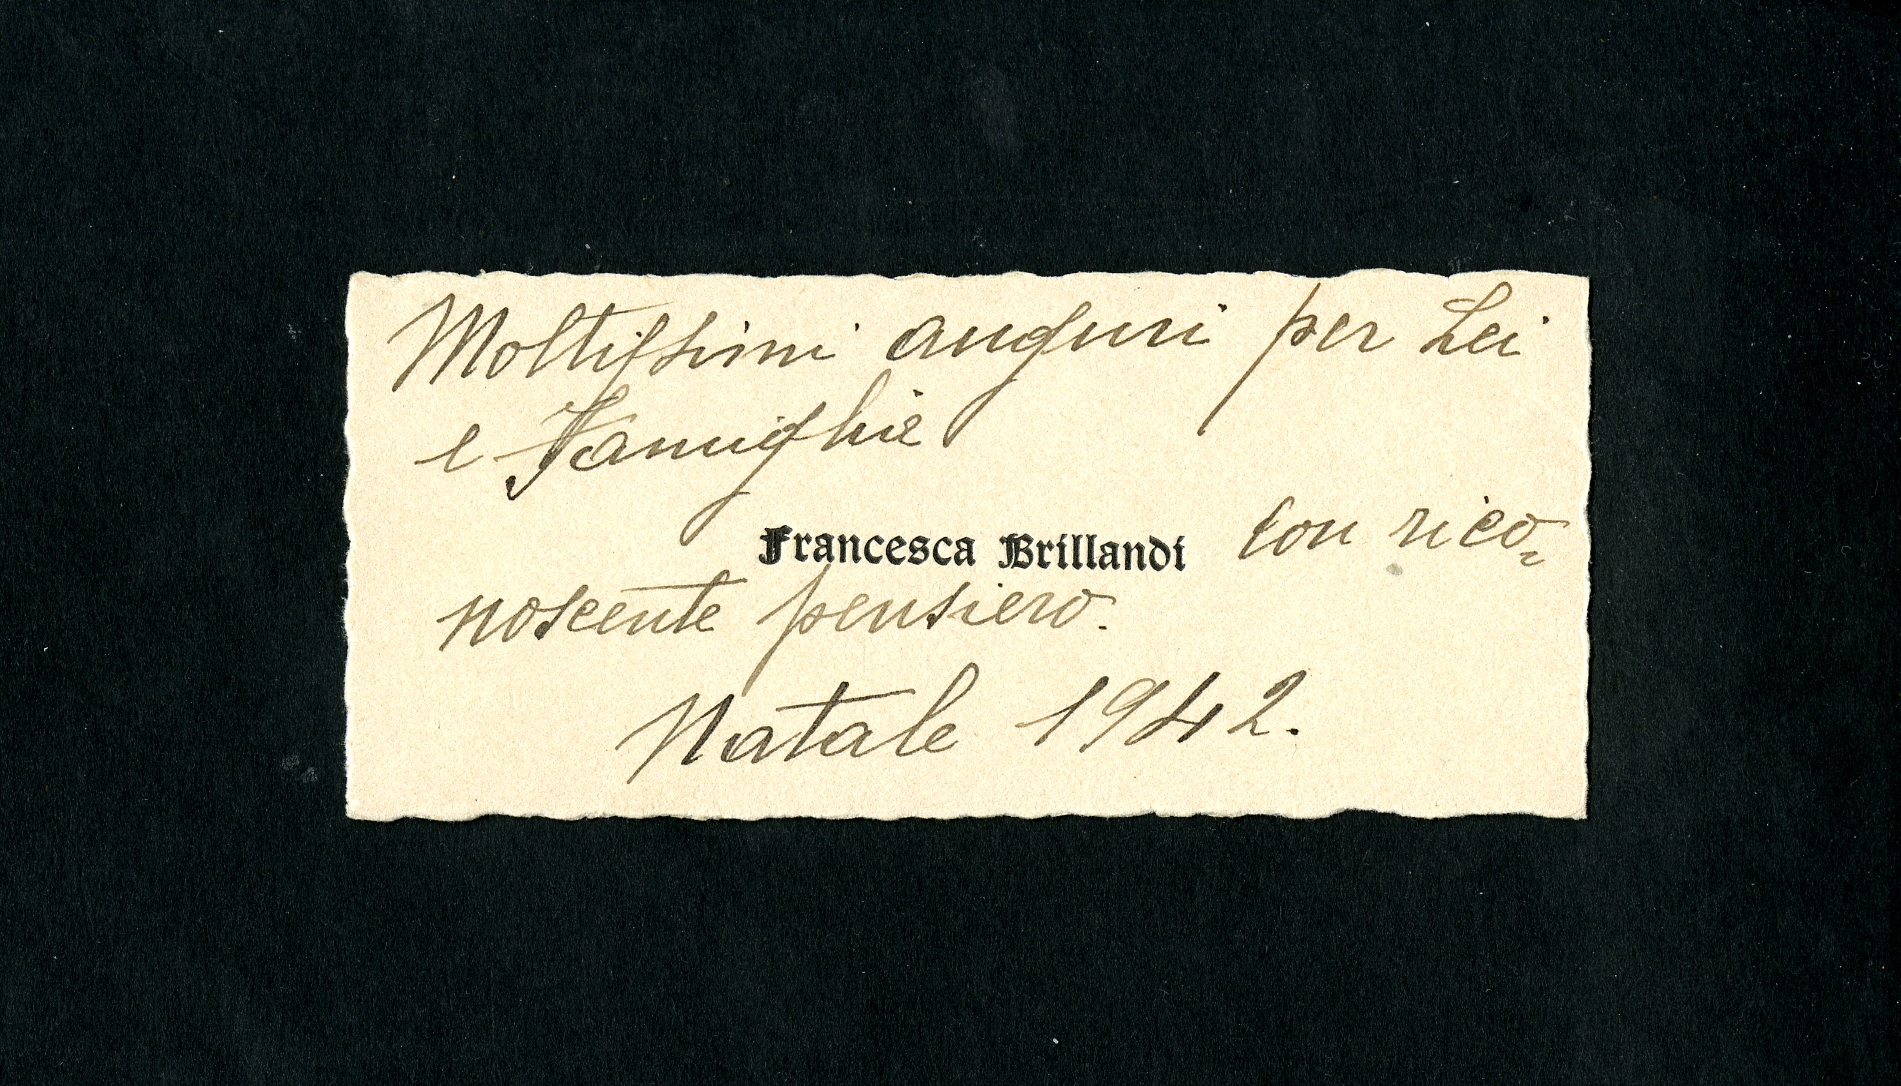 Moltissimi auguri per Lei
e Famiglia
Francesca Brillandi con rico=
noscente pensiero.
Natale 1942.